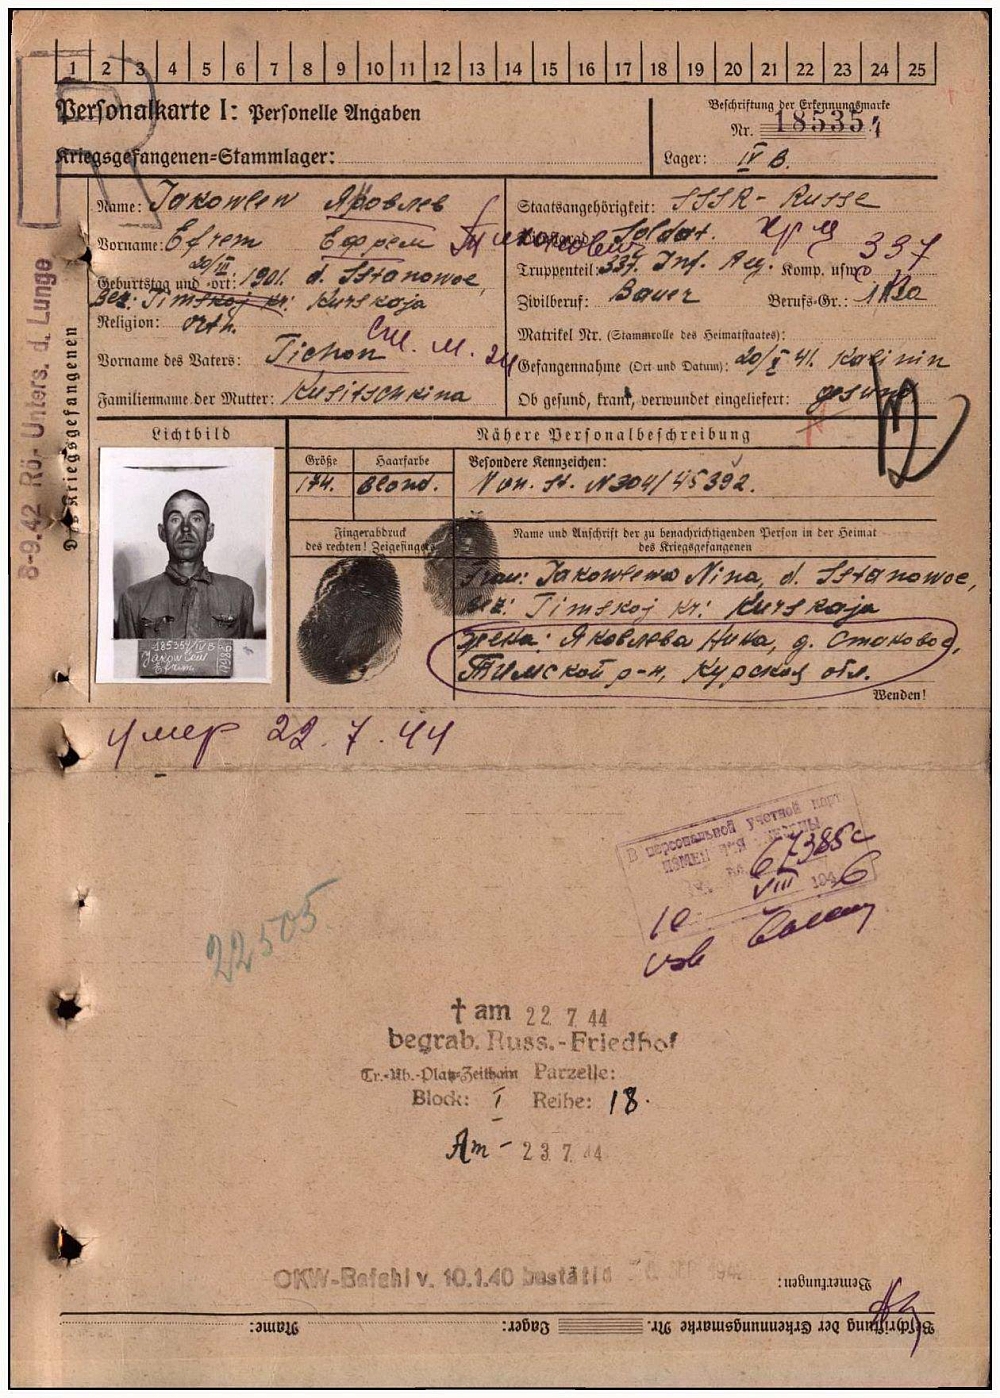 1 2 3 4 5 6 7 8 9 10 11 12 13 14 15 16 17 18 19 20 21 22 23 24 25
R
Personalkarte I: Personelle Angaben
Kriegsgefangenen-Stammlager:
Beschriftung der Erkennungsmarke
Nr. 185354
Lager: IV B.
8-9.42 Rö.-Unters. d. Lunge
Des Kriegsgefangenen
Name: Jakowlew Яковлев
Vorname: Efrem Ефрем Тихонович
Geburtstag und -ort: 20/III. 1901. d. Sstanowoe,
Bez: Timskoj kr: Kurskaja
Religion: orth.
Vorname des Vaters: Tichon
Familienname der Mutter: Kusitschkina
Staatsangehörigkeit: SSSR-Russe
Soldat.
Truppenteil: 337. Inf. Komp. usw. 337
Zivilberuf: Bauer Berufs-Gr.:
Matrikel Nr. (Stammrolle des Heimatstaates):
Gefangennahme (Ort und Datum): 20/X 41. Kalinin
Ob gesund, krank, verwundet eingeliefert: gesund
Lichtbild
185354/IV B
Jakowlew
Efrem
Nähere Personalbeschreibung
Größe Haarfarbe Besondere Kennzeichen:
174. Blond. N304/45392.
Fingerabdruck
des rechten! Zeigefingers
Name und Anschrift der zu benachrichtigenden Person in der Heimat
des Kriegsgefangenen
Frau: Jakowlewa Nina, d. Sstanowoe,
Bez: Timskoj kr: Kurskaja
жена: Яковлева Нина, д. Становое,
Тимской р-н, Курской обл.
Wenden!
умер 22.7.44
В персональной учетной карт
67385с
10 VIII 1946
22505
† am 22 7 44
begrab. Russ.-Friedhof
Tr.-Üb.-Platz-Zeithain Parzelle:
Block: I Reihe: 18.
Am - 23 7 44
OKW-Befehl v. 10.1.40 bestätigt
Bemerkungen:
Name: Lager: Beschriftung der Erkennungsmarke Nr.